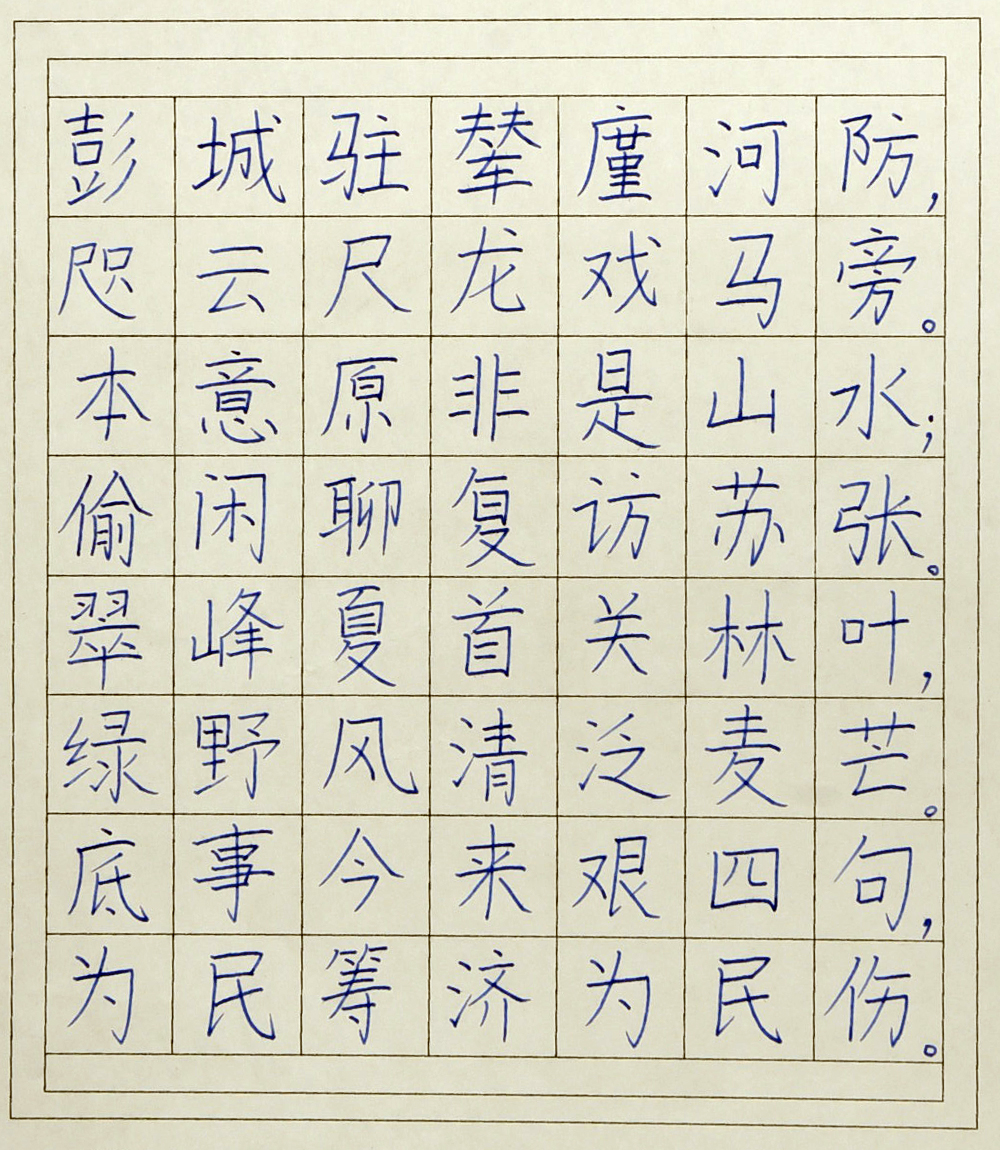 彭城驻辇廑河防,
咫云尺龙戏马旁。
本意原非是山水;
偷闲聊复访苏张。
翠峰夏首关林叶,
绿野风清泛麦芒。
底事今来艰四句,
为民筹济为民伤。